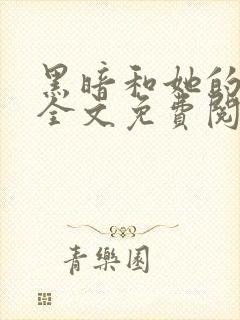 黑暗和她的
全文免費閱
青樂園